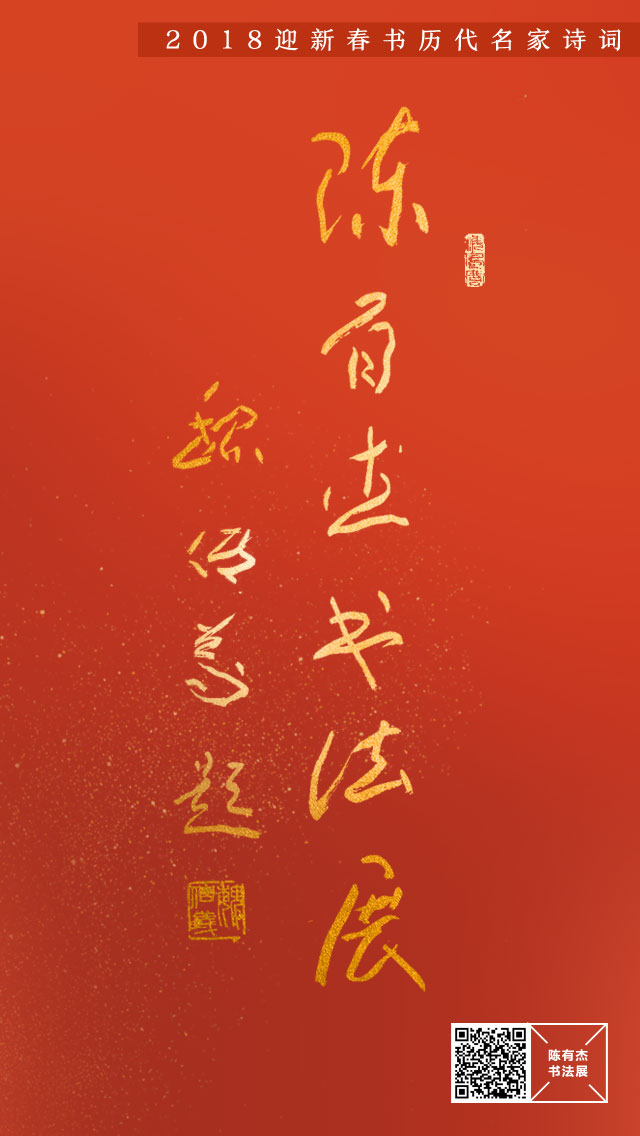 2018迎新春书历代名家诗词
陈有杰书法展
魏传義题
陈有杰
书法展